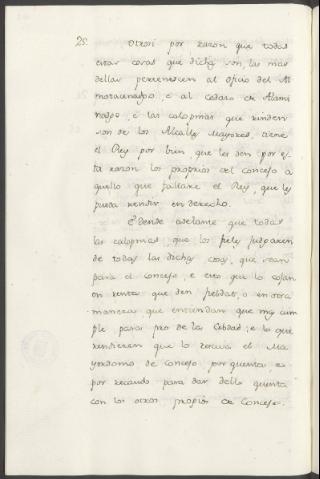 25. Otrosi por razon que todas
estas cosas que dicha son, las mas
dellas pertenescen al oficio del Al
motacenadgo, e al cedazo de Alami
nadgo, e las calopnias que rinden
son de los Alcalls mayores, tiene
el Rey por bien, que les den por es-
ta razon los proprios del concejo a
quello que fallare el Rey, que les
pueda rendir en derecho.
E dende adelante que todas
las calopnias que los fieles juzgaren
de todas las dichas cosas, que sean
para el concejo, e estos que lo cojan
en renta que den fiebdat, o en otra
manera que entiendan que mas cum
ple para pro de la Cibdad; e lo que
rendieren que lo reciva el Ma
yordomo de concejo por quenta, e
por recaudo para dar dello quenta
con los otros propios de Concejo.